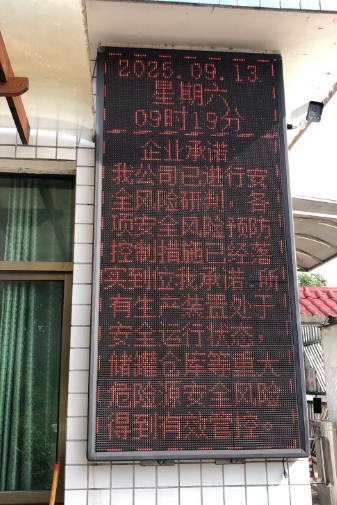 2025.09.13
星期六
09时19分
企业承诺
我公司已进行安
全风险研判，各
项安全风险预防
控制措施已经落
实到位我承诺，所
有生产装置处于
安全运行状态，
储罐仓库等重大
危险源安全风险
得到有效管控。